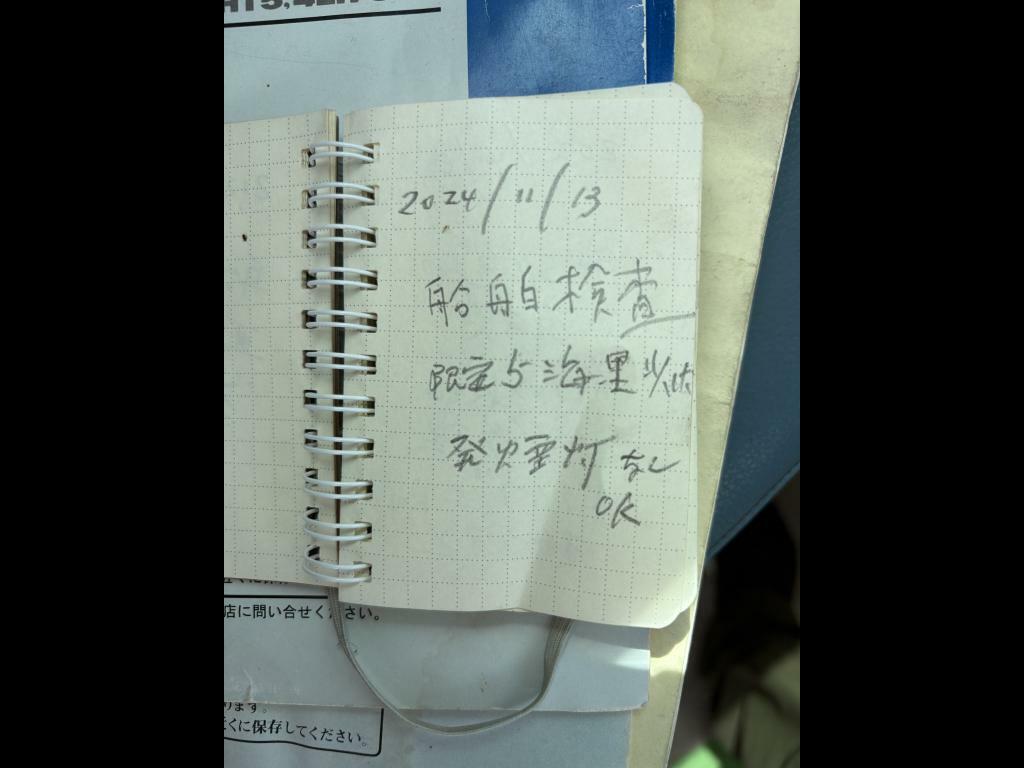 2024/11/13
船舶検査
限定5海里以内
発火雷灯なし
OK
店に問い合せください。
ります。
くに保存してください。